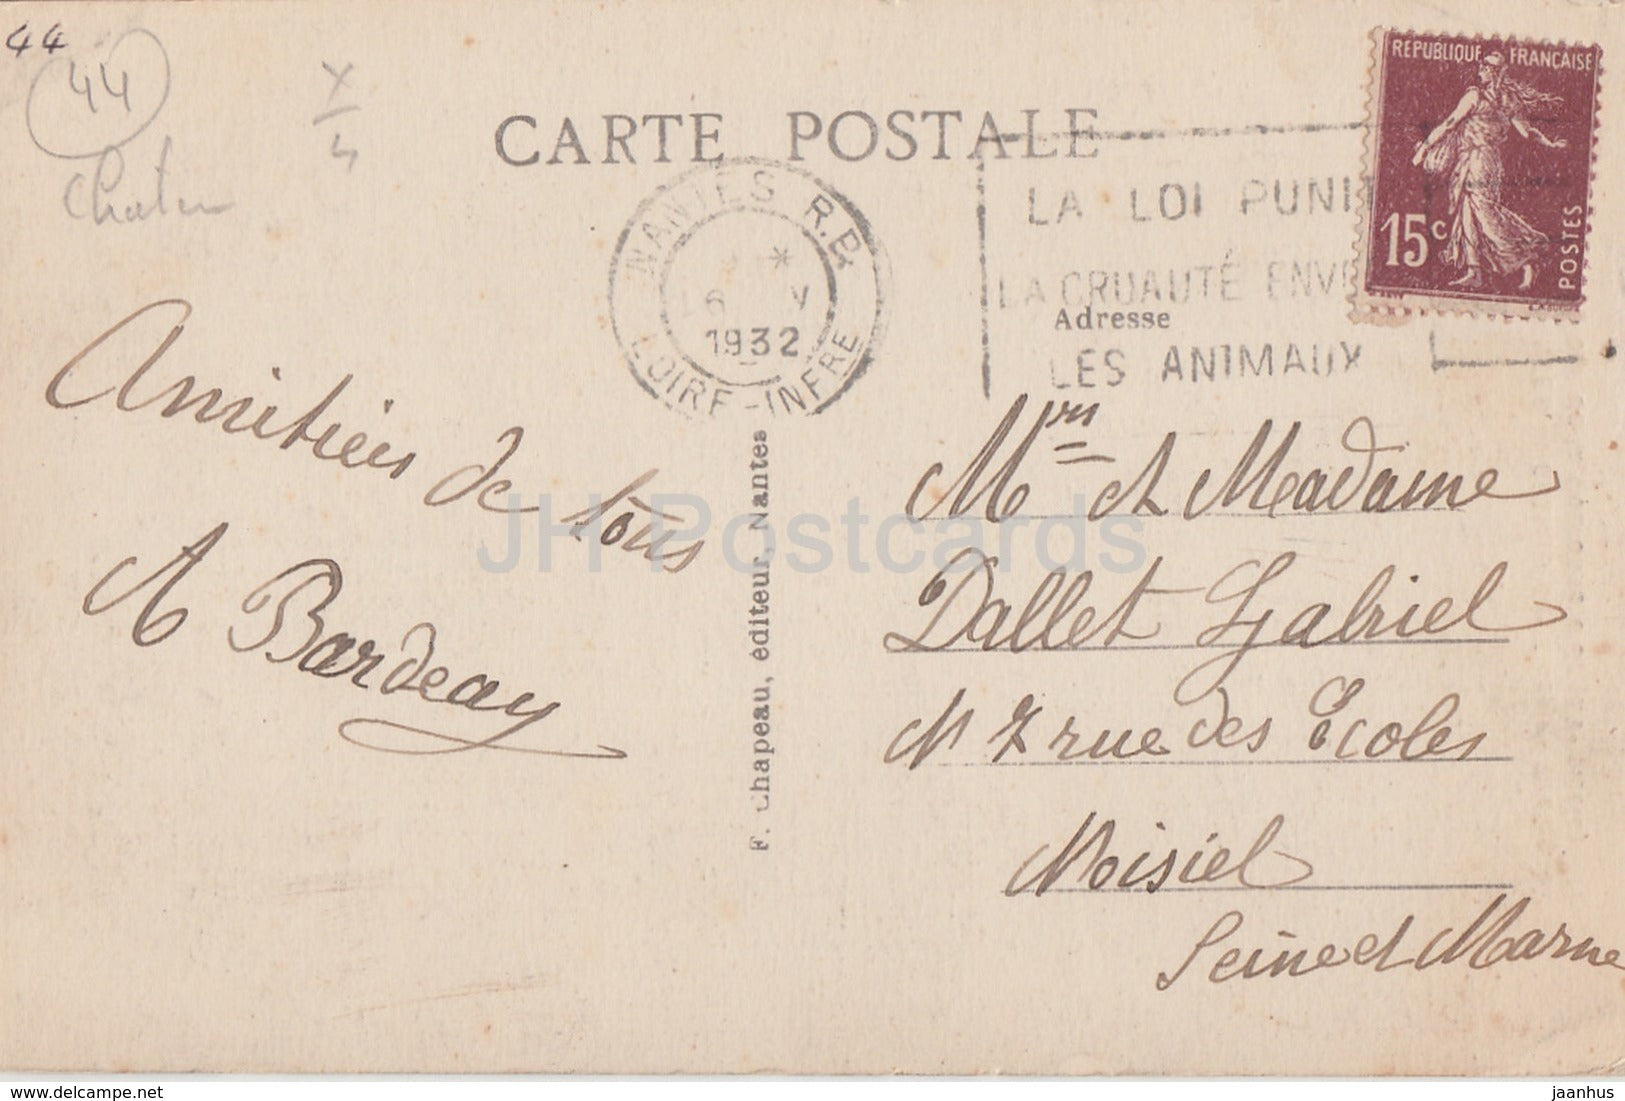 44
44
CARTE POSTALE
REPUBLIQUE FRANÇAISE
15c
POSTES
NANTES R.P.
1932
LOIRE-INFRE
LA LOI PUNIT
LA CRUAUTÉ ENVE
LES ANIMAUX
Adresse
Amitiées de tous
A Bardeay
F. Chapeau, éditeur, Nantes
Mr et Madame
Dallet Gabriel
N 7 rue des Ecoles
Noisiel
Seine et Marne
JH Postcards
delcampe.net
jaanhus